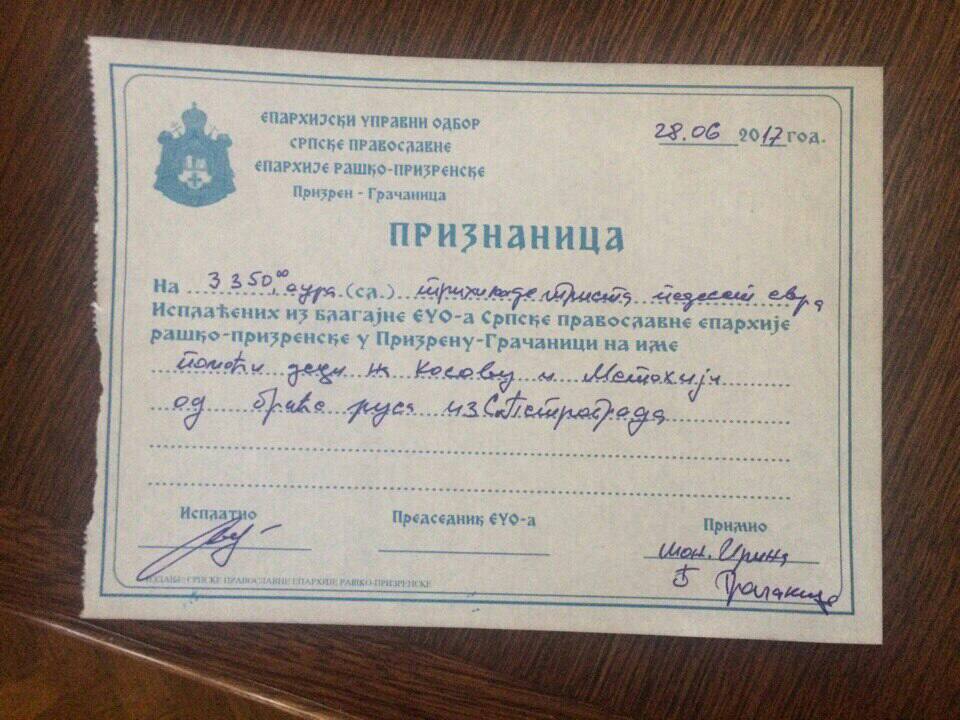 ЕПАРХИЈСКИ УПРАВНИ ОДБОР
СРПСКЕ ПРАВОСЛАВНЕ
ЕПАРХИЈЕ РАШКО-ПРИЗРЕНСКЕ
Призрен - Грачаница
28.06 2017 год.
ПРИЗНАНИЦА
На 3350,00 еура (сл.) трихиљаде триста педесет евра
Исплаћених из благајне ЕУО-а Српске православне епархије
рашко-призренске у Призрену-Грачаници на име
помоћи деци на Косову и Метохији
од браће руса из С.Петрограда
Исплатио Председник ЕУО-а Примио
мон. Ирина
Грачанице
ИЗДАЊЕ: СРПСКЕ ПРАВОСЛАВНЕ ЕПАРХИЈЕ РАШКО-ПРИЗРЕНСКЕ